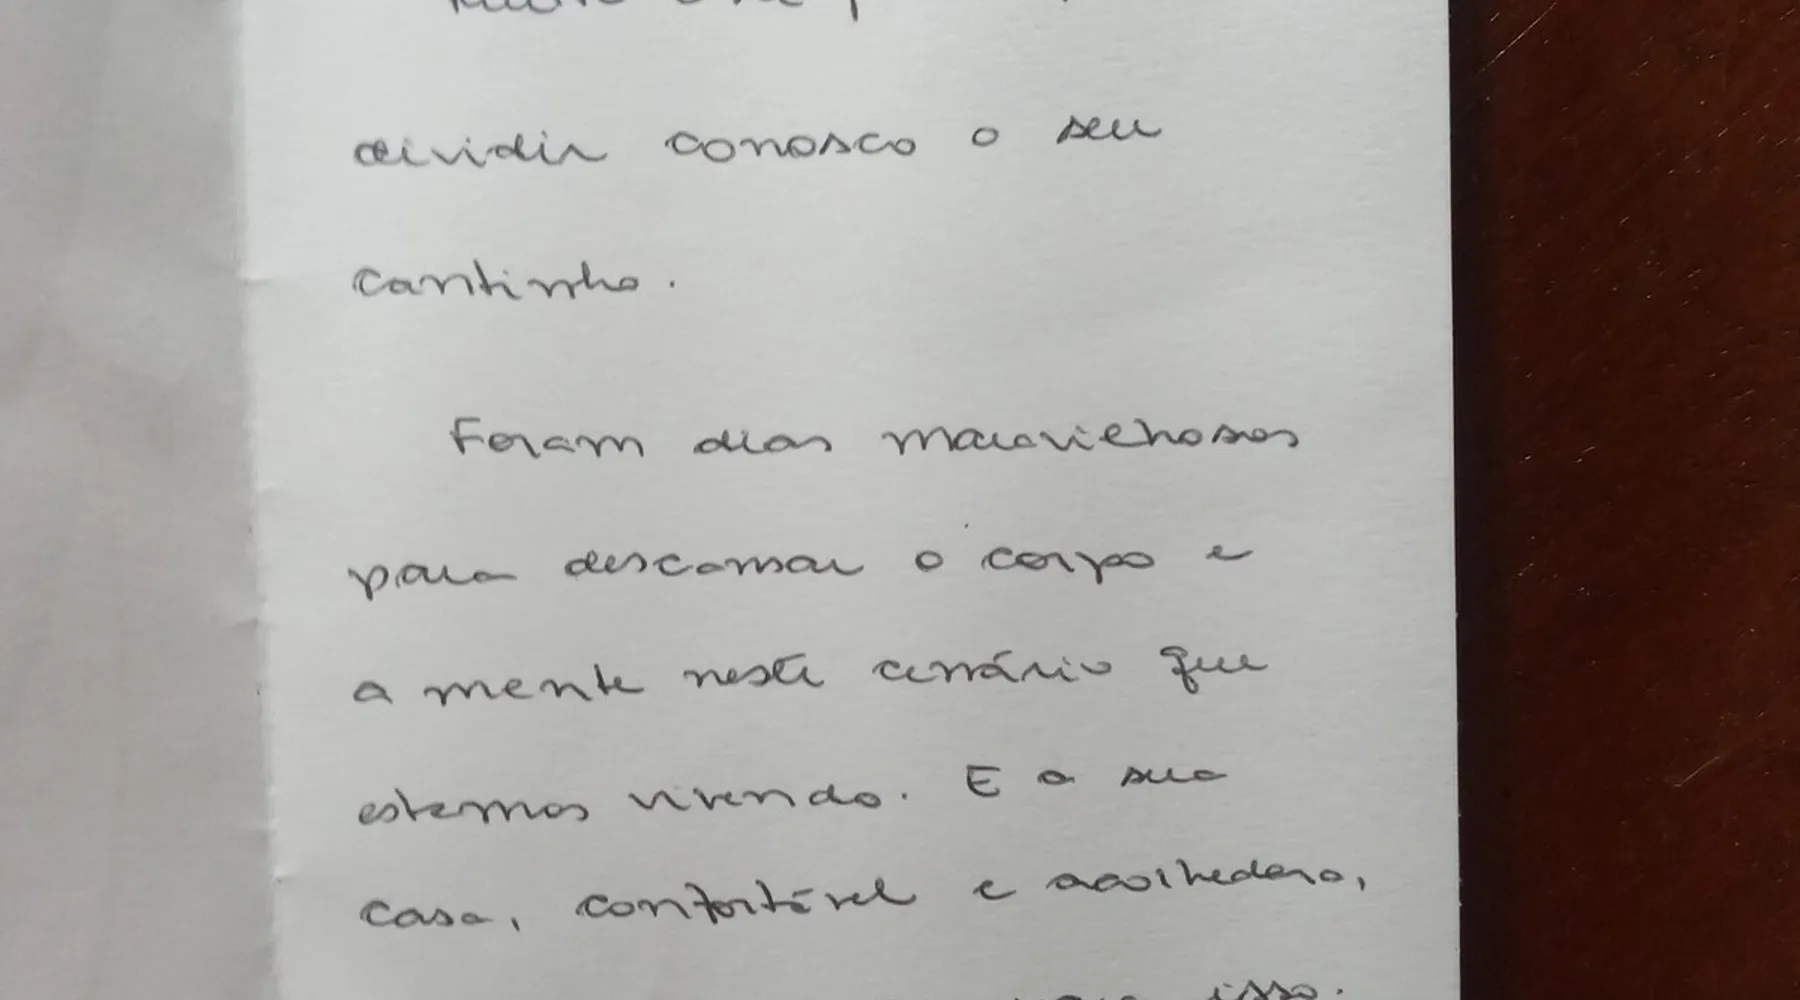 dividir conosco o seu
cantinho.
Foram dias maravilhosos
para descansar o corpo e
a mente neste cenário que
estamos vivendo. E a sua
casa, confortável e acolhedora,
isso.